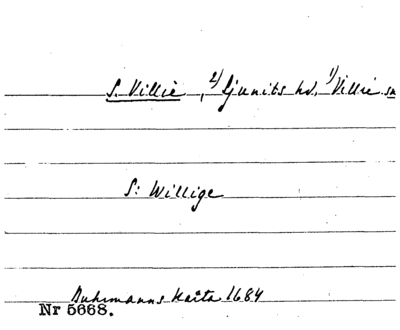 S. Villie, 2) Ljunits hd, 1) Villie sn
S: Willige
Buhrmanns Karta 1684
Nr 5668.